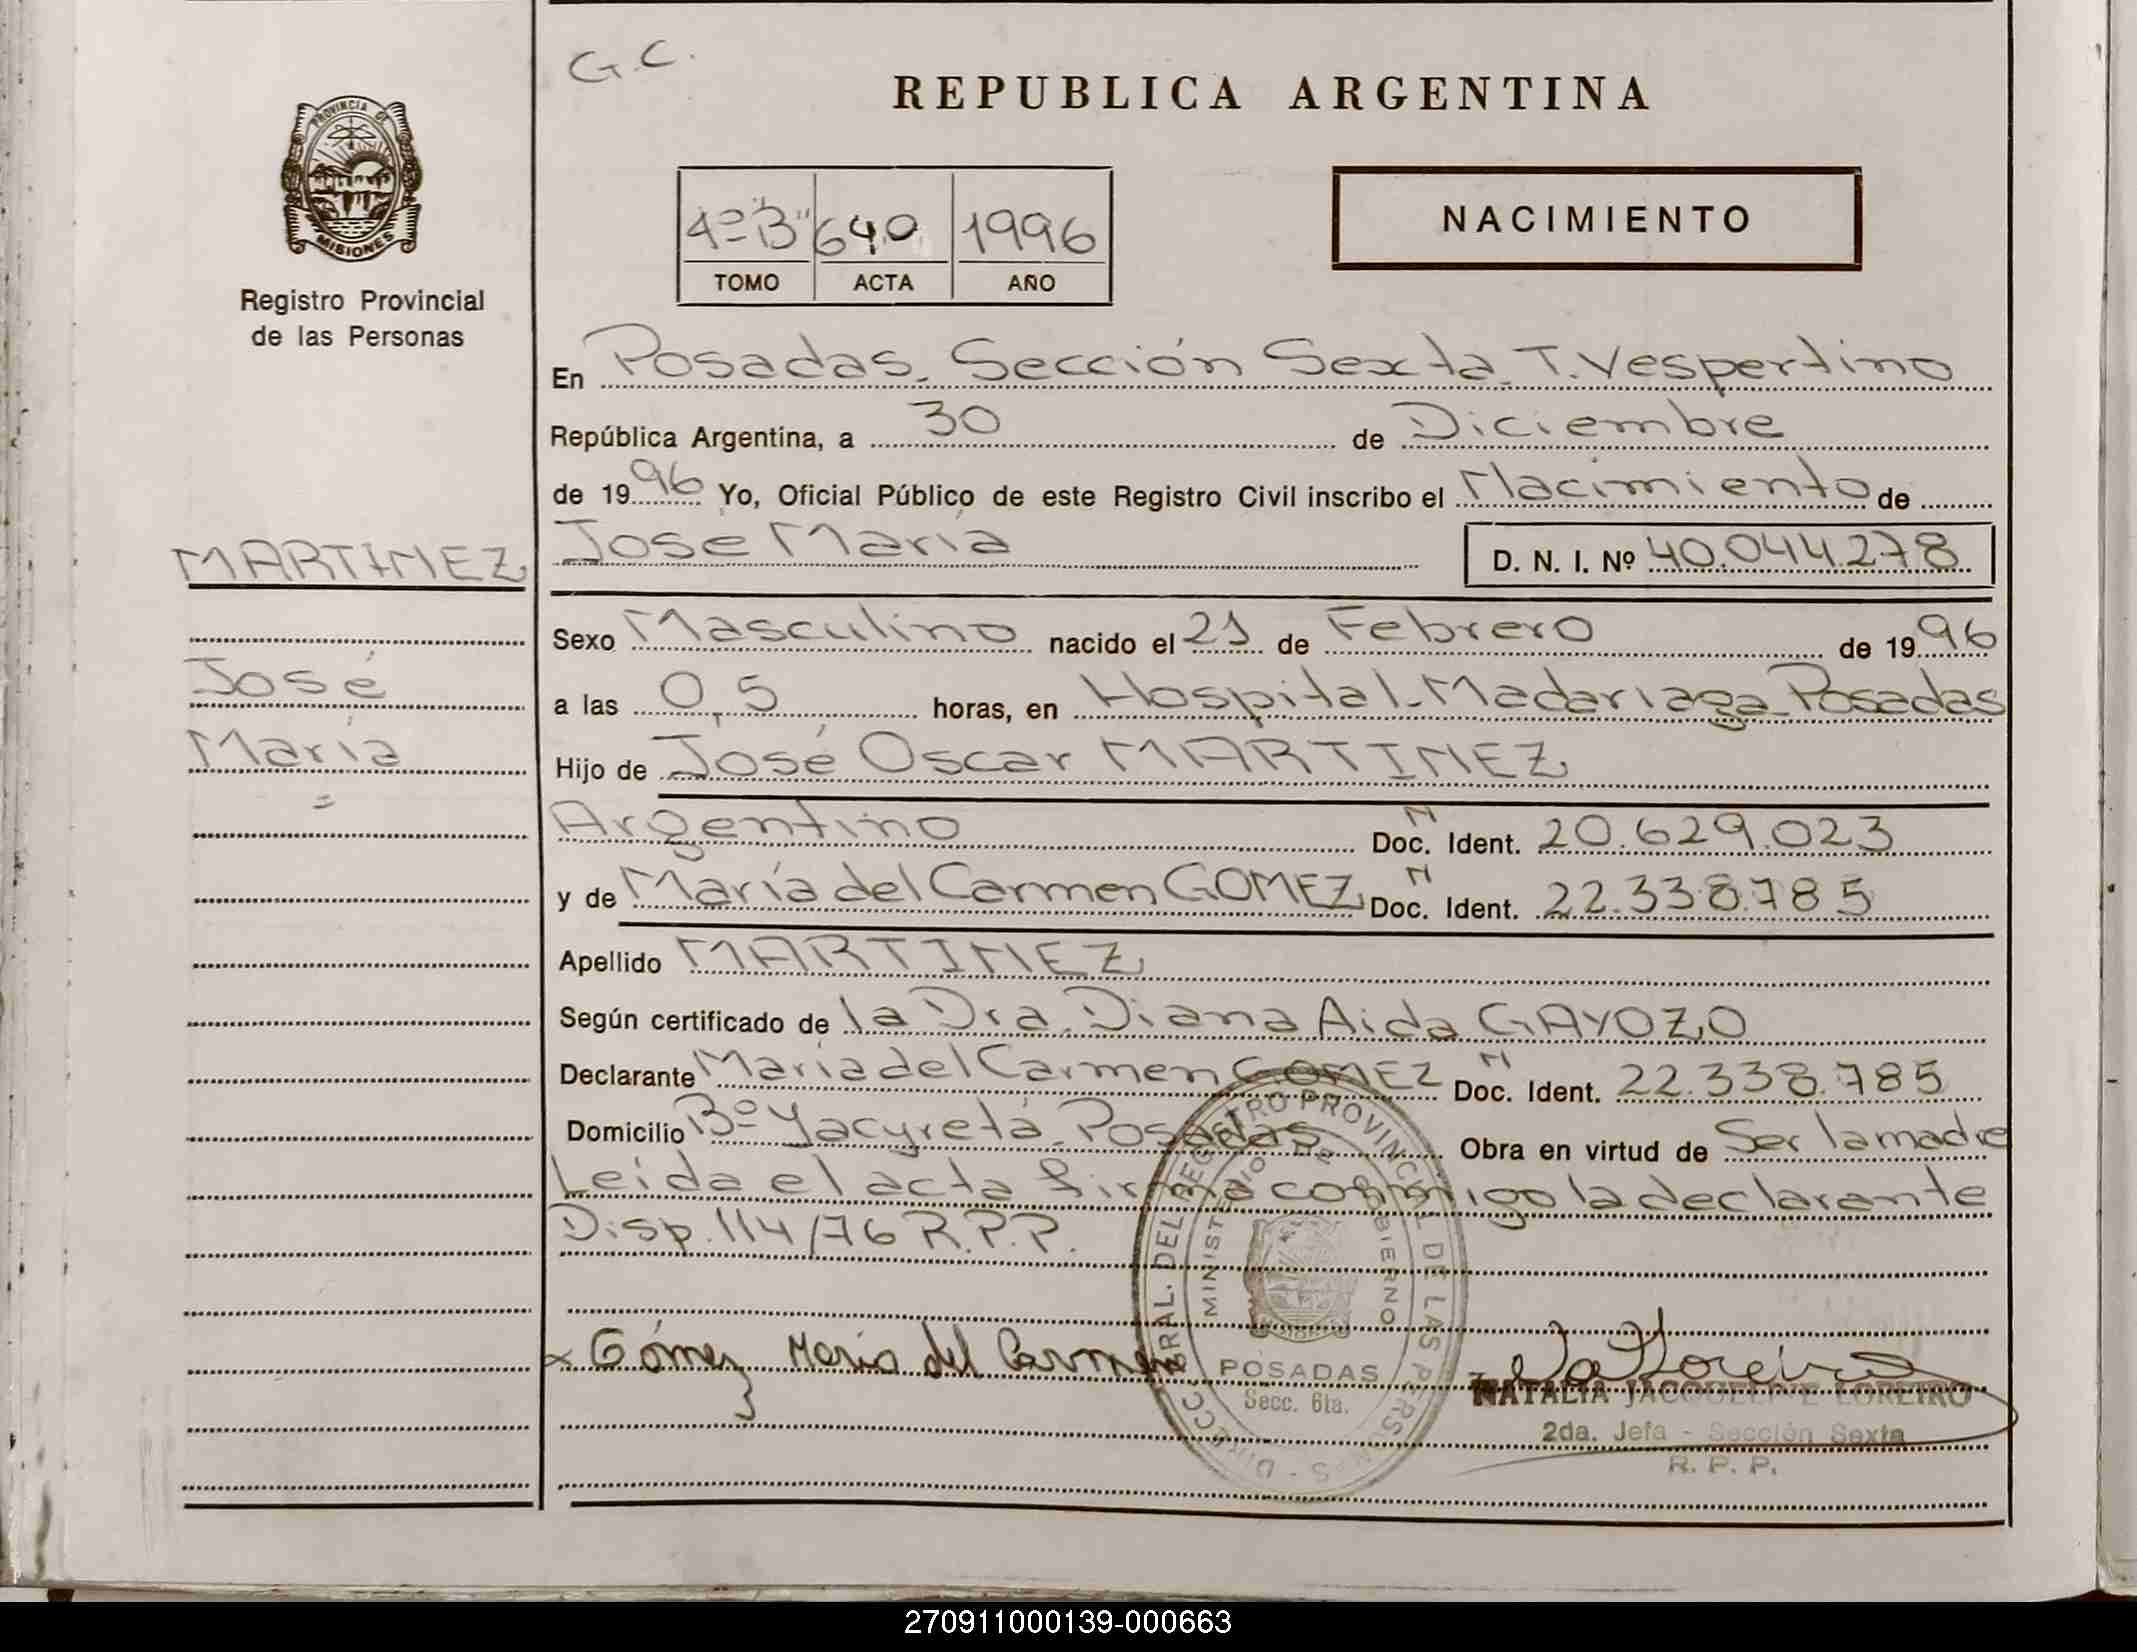 G.C.
REPUBLICA ARGENTINA
PROVINCIA DE
MISIONES
Registro Provincial
de las Personas
4º"B" 640 1996
TOMO ACTA AÑO
NACIMIENTO
En Posadas. Sección Sexta. T. Vespertino
República Argentina, a 30 de Diciembre
de 1996 Yo, Oficial Público de este Registro Civil inscribo el Nacimiento de
MARTINEZ
José María
D. N. I. Nº 40.044.278
Sexo Masculino nacido el 21 de Febrero de 1996
José
a las 0,5 horas, en Hospital-Madariaga-Posadas
María
Hijo de José Oscar MARTINEZ
=
Argentino Doc. N Ident. 20.629.023
y de María del Carmen GOMEZ Doc. N Ident. 22.338.785
Apellido MARTINEZ
Según certificado de la Dra. Diana Aida GAYOZO
Declarante María del Carmen GOMEZ Doc. N Ident. 22.338.785
Domicilio Bº Yacyretá-Posadas Obra en virtud de Ser la madre
Leída el acta firma conmigo la declarante
Disp. 114/76 R.P.P.
x Gómez María del Carmen
DIRECC. GRAL. DEL REGISTRO PROVINCIAL DE LAS PERSONAS
MINISTERIO DE GOBIERNO
POSADAS
Secc. 6ta.
NATALIA JACQUELINE LOREIRO
2da. Jefa - Sección Sexta
R. P. P.
270911000139-000663